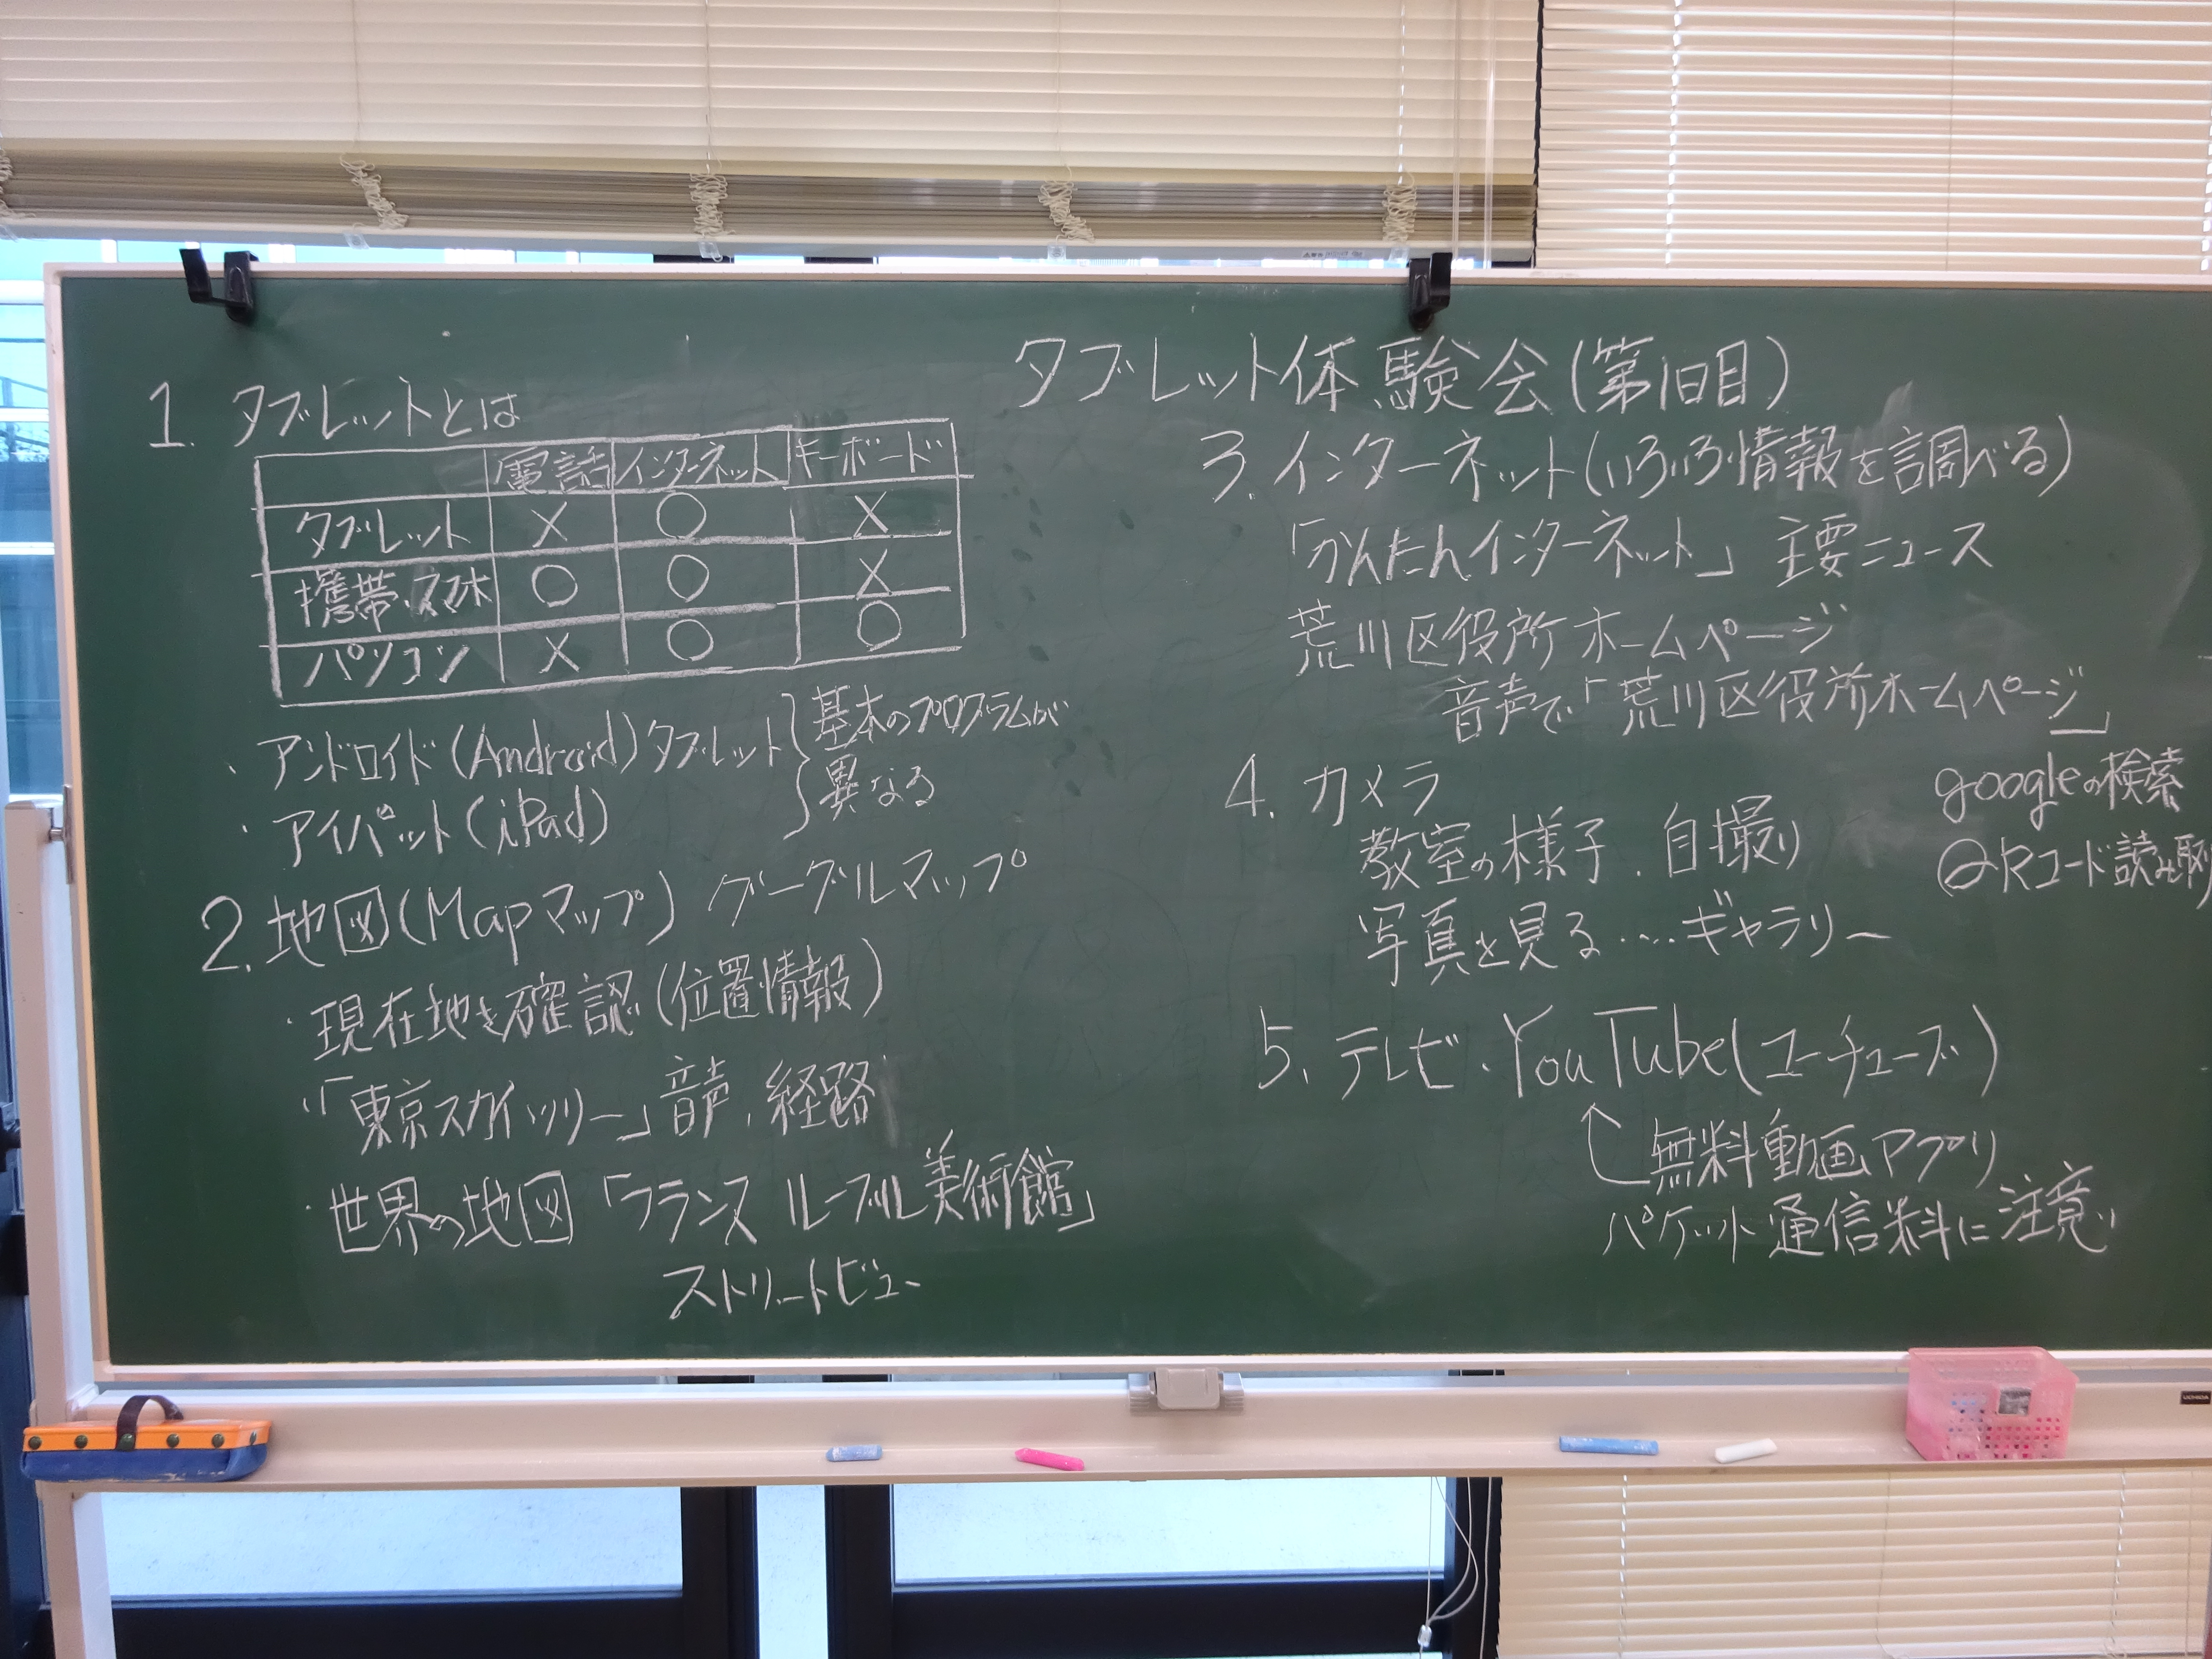 タブレット体験会(第1日目)
1. タブレットとは
電話 インターネット キーボード
タブレット × ○ ×
携帯・スマホ ○ ○ ×
パソコン × ○ ○
・アンドロイド(Android)タブレット
・アイパット(iPad)
基本のプログラムが
異なる
2. 地図(Mapマップ) グーグルマップ
・現在地を確認(位置情報)
・「東京スカイツリー」音声、経路
・世界の地図「フランス ルーブル美術館」
ストリートビュー
3. インターネット(いろいろ情報を調べる)
「かんたんインターネット」 主要ニュース
荒川区役所ホームページ
音声で「荒川区役所ホームページ」
4. カメラ
教室の様子、自撮り
写真を見る‥‥ギャラリー
googleの検索
QRコード読み取り
5. テレビ・YouTube(ユーチューブ)
無料動画アプリ
パケット通信料に注意
UCHIDA